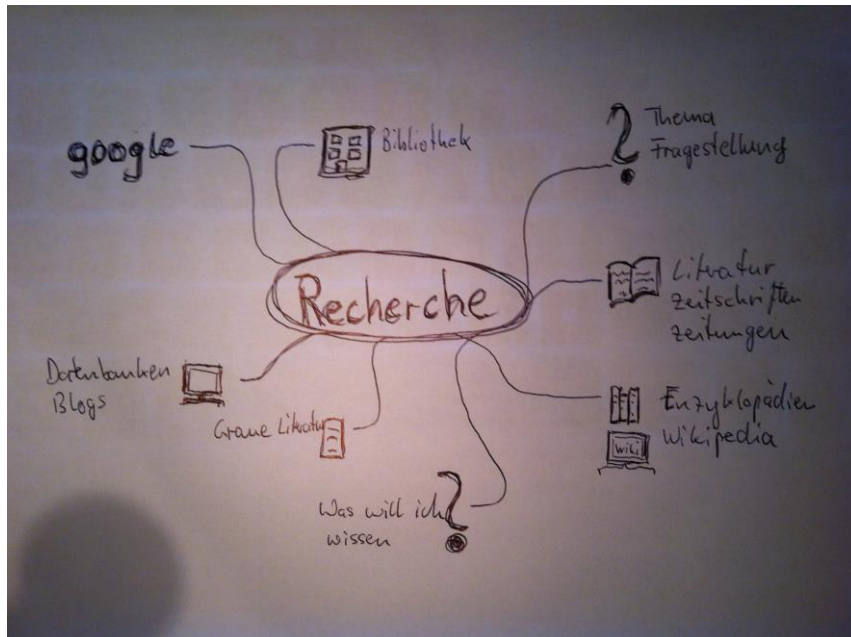 google
Bibliothek
Thema
Fragestellung
Recherche
Literatur
Zeitschriften
Zeitungen
Datenbanken
Blogs
Graue Literatur
Enzyklopädien
Wikipedia
Wiki
Was will ich
wissen